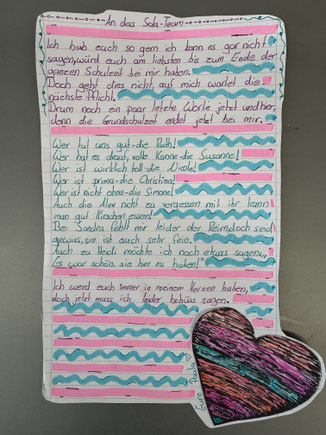 An das Sola-Team
Ich hab euch so gern ich kann es gar nicht
sagen, würd euch am liebsten bis zum Ende der
ganzen Schulzeit bei mir haben.
Doch geht dies nicht, auf mich wartet die
nächste Pflicht.
Drum noch ein paar letzte Worte jetzt und hier,
denn die Grundschulzeit endet jetzt bei mir.
Wer tut uns gut-die Ruth!
Wer hat es drauf, volle Kanne-die Susanne!
Wer ist wirklich toll-die Nicole!
Wer ist prima-die Christina!
Wer ist nicht ohne-die Simone!
Auch die Alev nicht zu vergessen mit ihr kann
man gut Kirschen essen!
Bei Sandra fehlt mir leider der Reim doch seid
gewiss, sie ist auch sehr fein.
Auch zu Heidi möchte ich noch etwas sagen,
Es war schön, sie hier zu haben!
Ich werd euch immer in meinem Herzen haben,
doch jetzt muss ich leider tschüss sagen.
Eure Paula